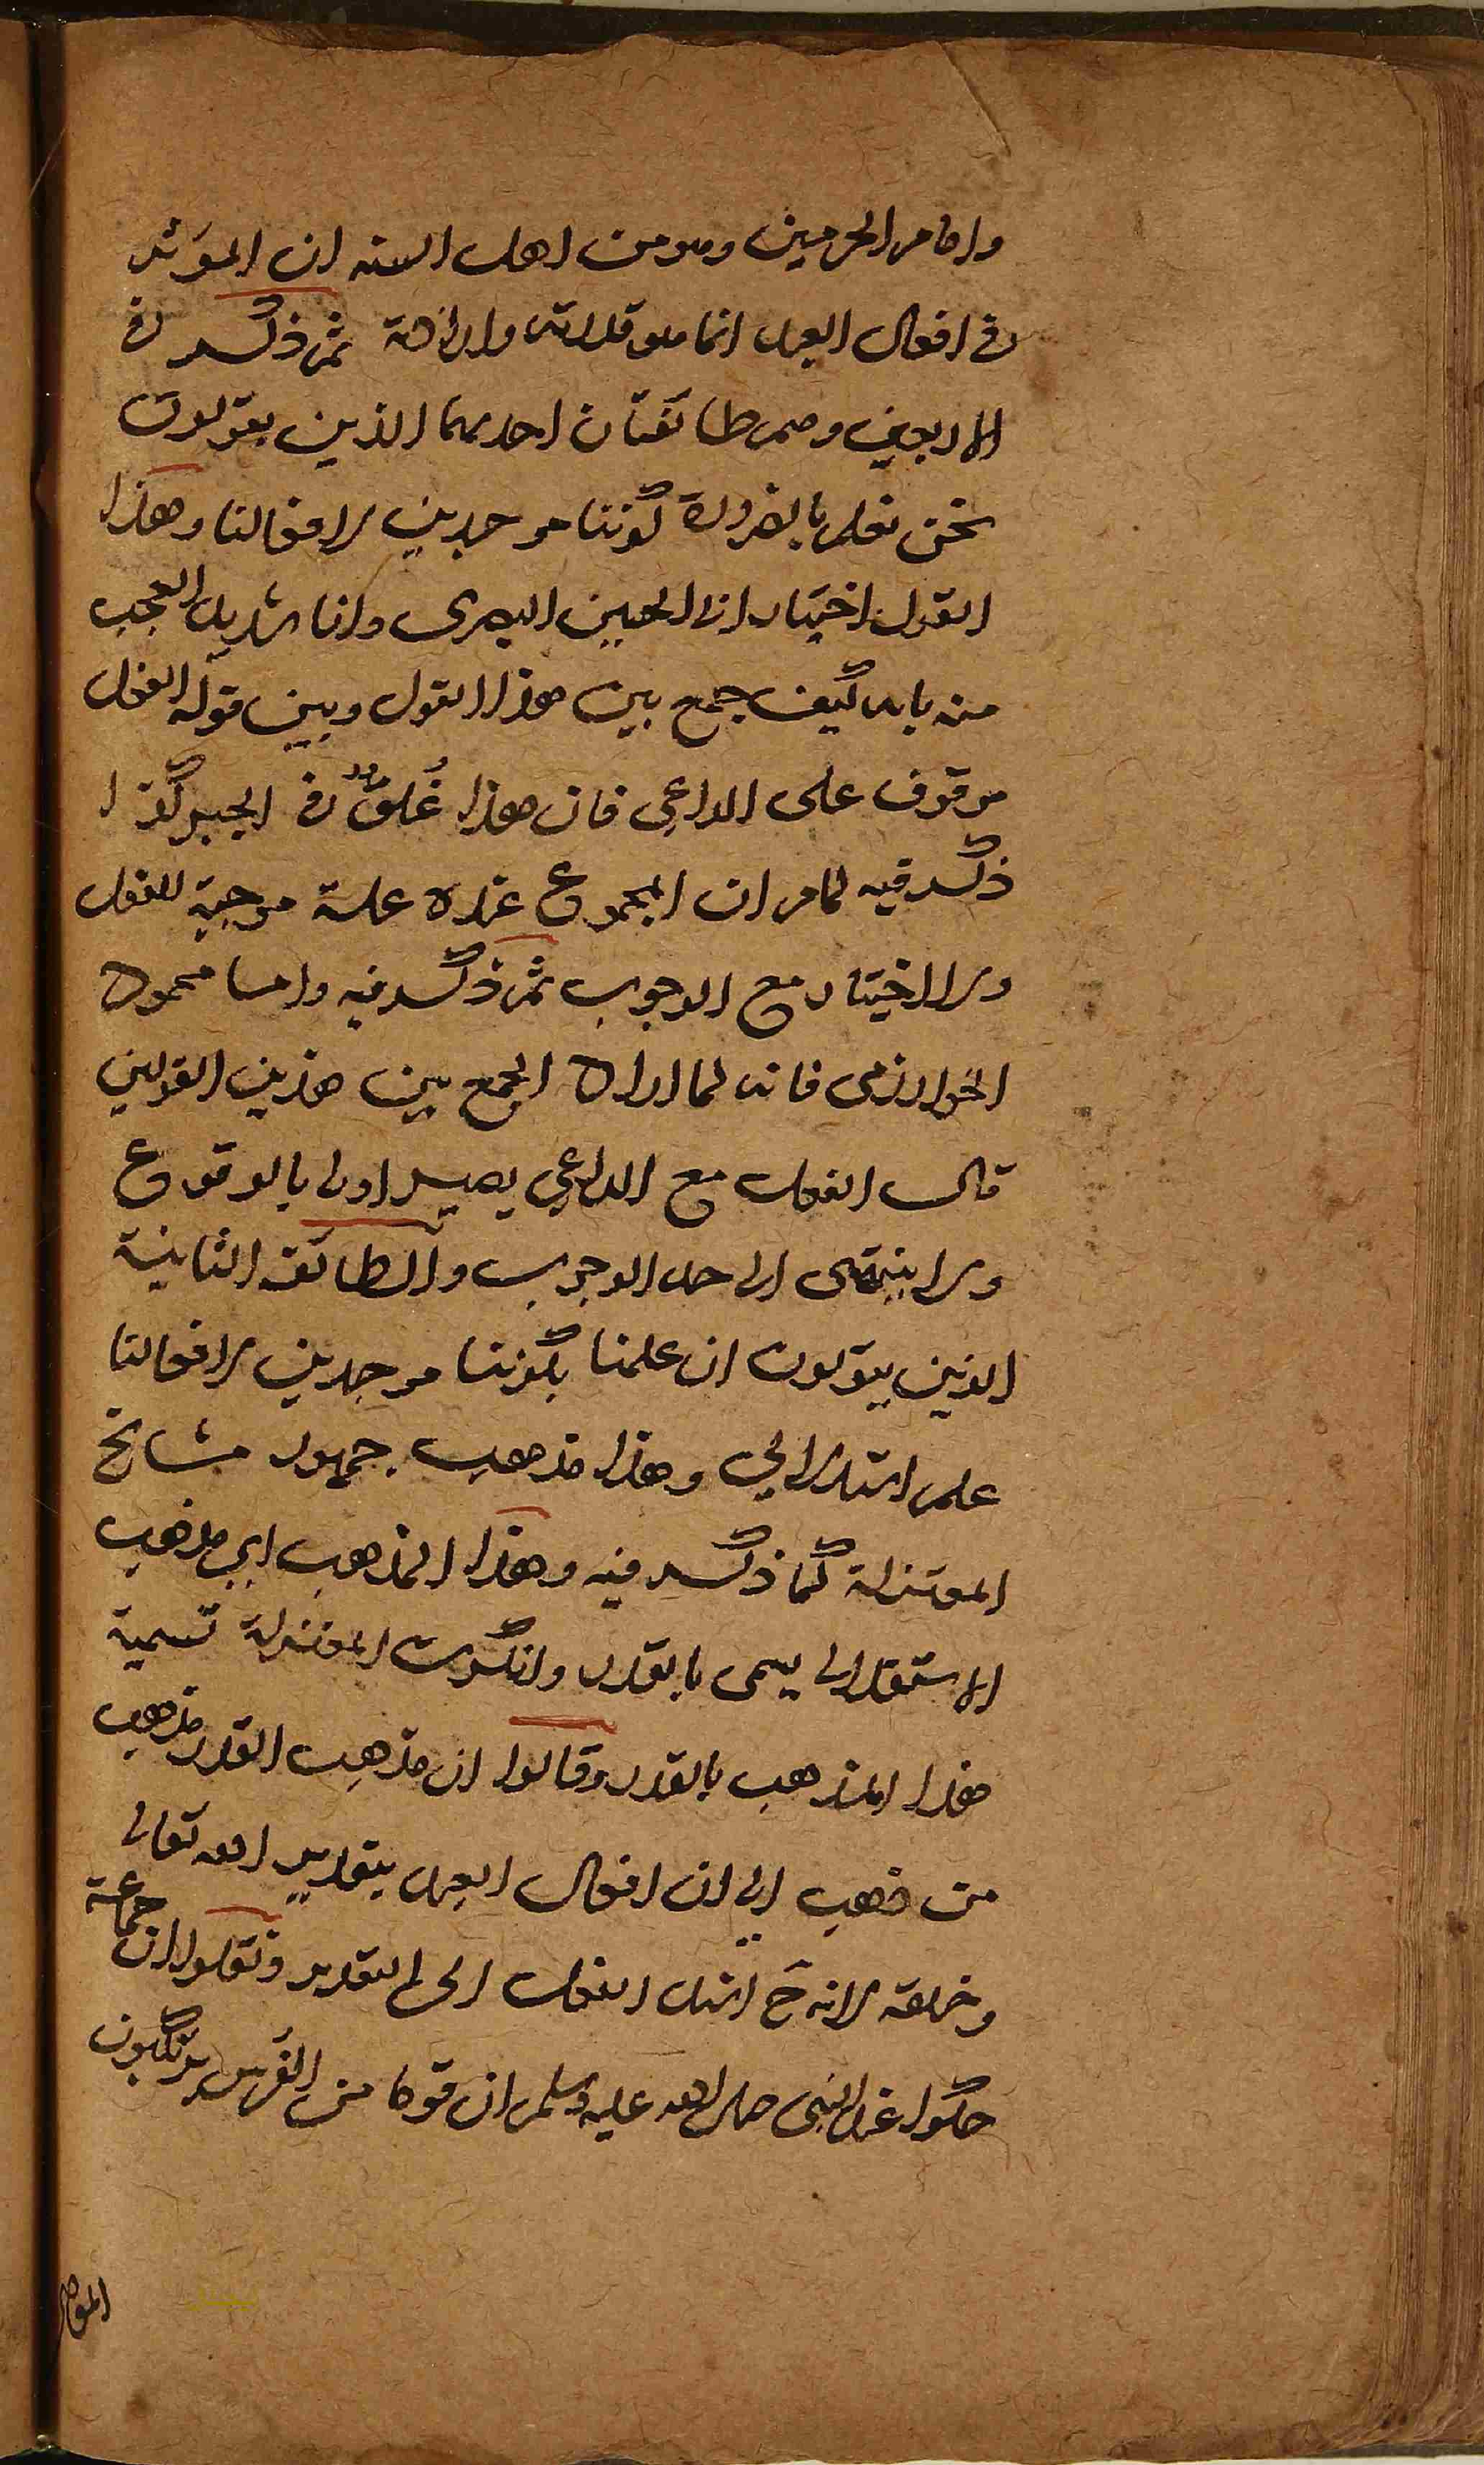 وامام الحرمين وهو من اهل السنه ان المؤثر
في افعال العبد انما هو قدرته وارادته ثم ذكر في
الاربعين وهم طائفتان احديهما الذين يقولون
نحن نعلم بالضرورة كوننا موجدين لافعالنا وهذا
القول اختيار ابى الحسين البصرى وانا شديد العجب
منه بانه كيف جمع بين هذا القول وبين قوله الفعل
موقوف على الداعي فان هذا غلو في الجبر كذا
ذكر فيه لما مر ان المجموع عنده علة موجبة للفعل
ولا اختيار مع الوجوب ثم ذكر فيه واما محمود
الخوارزمى فانه لما اراد الجمع بين هذين القولين
قال الفعل مع الداعي يصير اولى بالوقوع
ولا ينتهى الى حد الوجوب والطائفة الثانية
الذين يقولون ان علمنا بكوننا موجدين لافعالنا
علم استدلالي وهذا مذهب جمهور مشايخ
المعتزلة كما ذكر فيه وهذا المذهب اي مذهب
الاستقلال يسمى بالقدر وانكرت المعتزلة تسمية
هذا المذهب بالقدر وقالوا ان مذهب القدر مذهب
من ذهب الى ان افعال العبد بتقدير الله تعالى
وخلقه لانه ح اسند الفعل الى التقدير ونقلوا ان جماعة
حكوا عند النبى صلى الله عليه وسلم ان قوما من الفرس يرتكبون